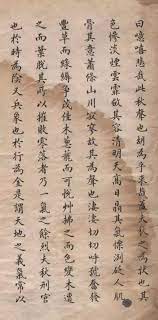 曰噫嘻悲哉此秋聲也胡為乎來哉蓋夫秋之為狀也其
色慘淡煙雲霏斂其容清明天高日晶其氣慄冽砭人肌
骨其意蕭條山川寂寥故其為聲也淒淒切切呼號奮發
豐草而綠縟爭茂佳木蔥蘢而可悅草拂之而色變木遭
之而葉脫其所以摧敗零落者乃一氣之餘烈夫秋刑官
也於時為陰又兵象也於行為金是謂天地之義氣常以